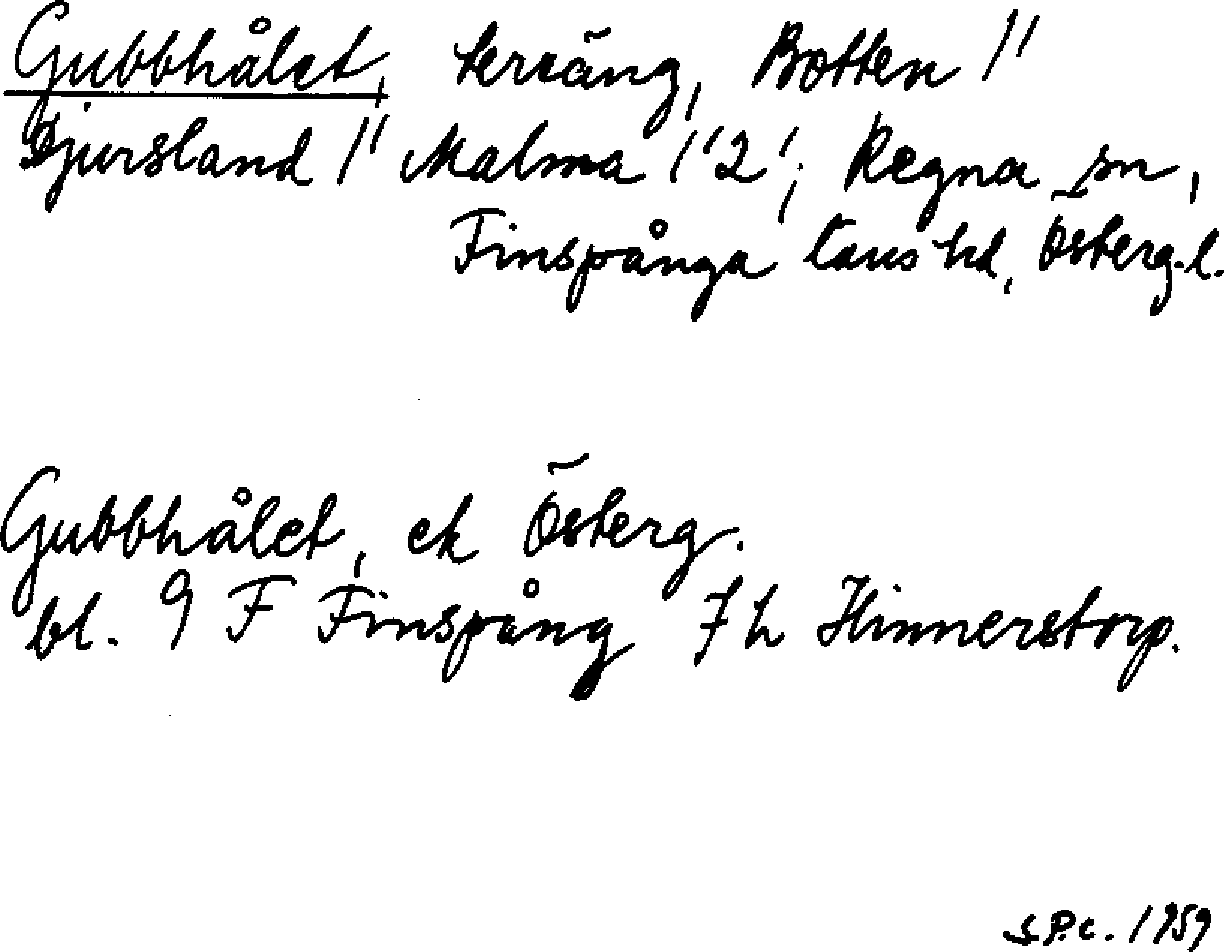 Gubbhålet, terräng, Botten 1'
Djursland 1' Malma 1'2'; Regna sn,
Finspånga läns hd, Österg.l.
Gubbhålet, ek Österg.
bl. 9 F Finspång 7 h Hinnerstorp.
S.P.c. 1959